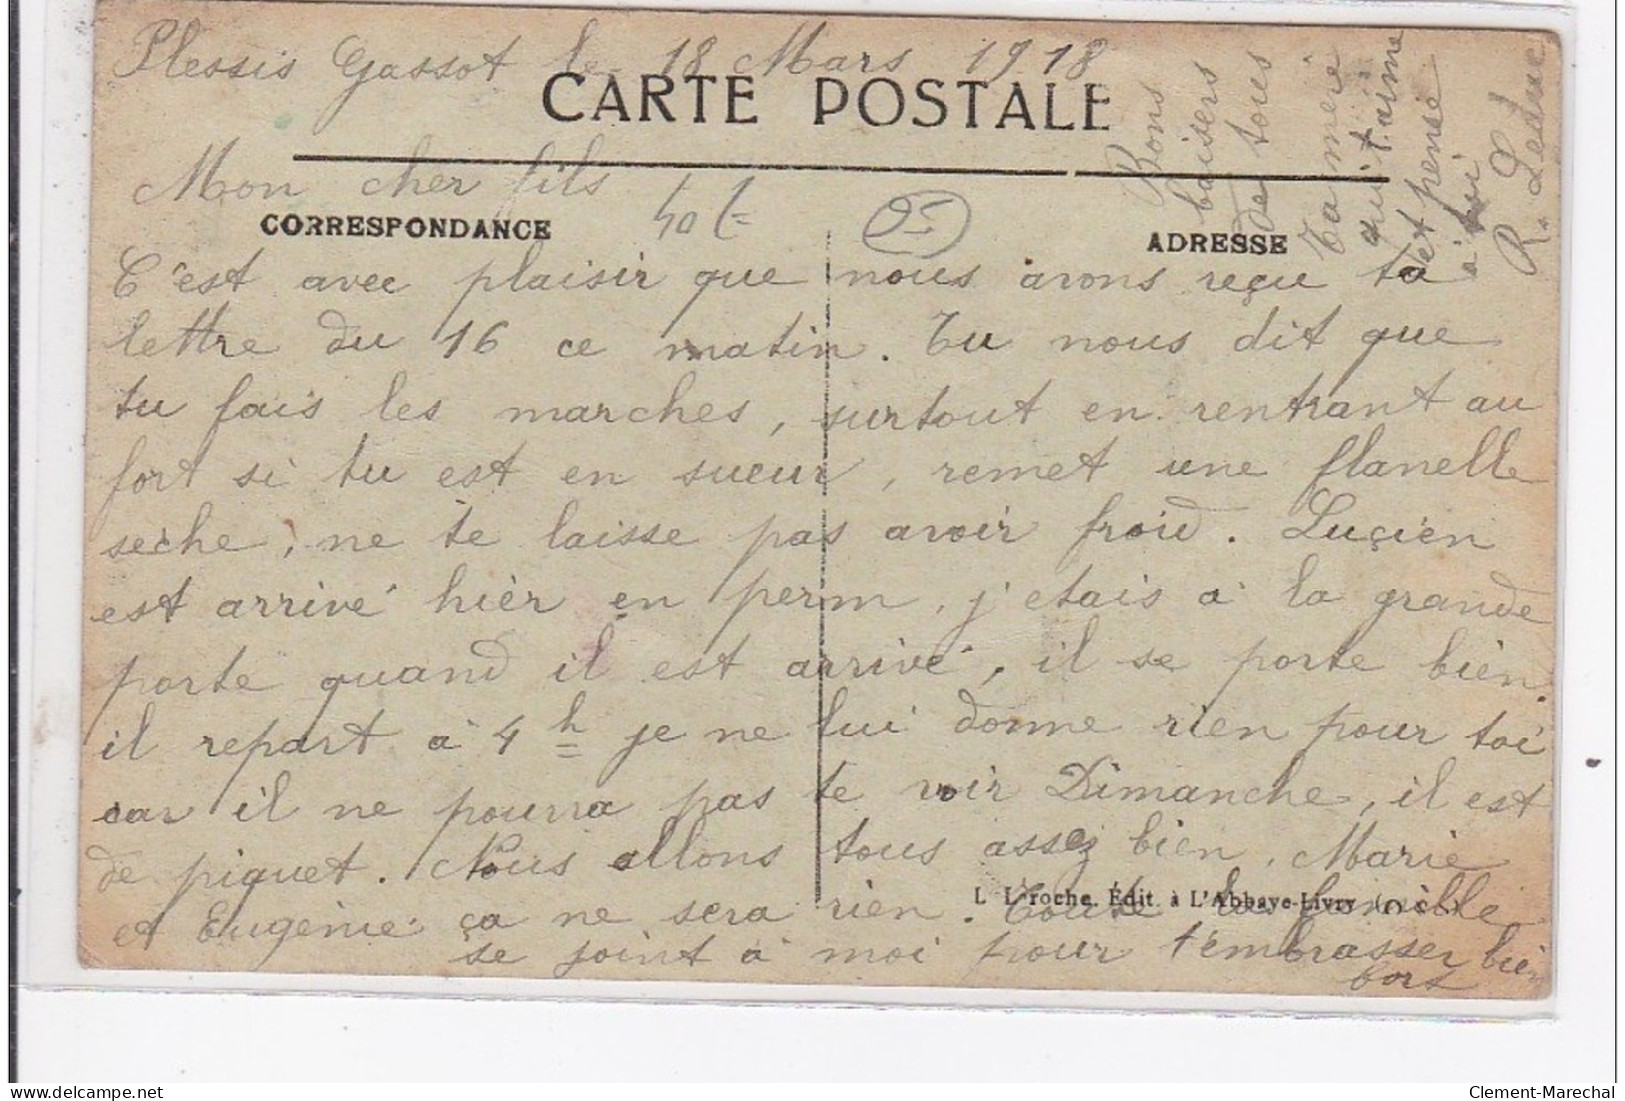 Plessis Gassot le 18 Mars 1918
CARTE POSTALE
Mon cher fils
CORRESPONDANCE
ADRESSE
C'est avec plaisir que nous avons reçu ta
lettre du 16 ce matin. Tu nous dit que
tu fais les marches, surtout en rentrant au
fort si tu est en sueur, remet une flanelle
seche, ne te laisse pas avoir froid. Luçien
est arrivé hièr en perm, j'etais à la grande
porte quand il est arrivé, il se porte bièn.
il repart à 4 h je ne lui donne rien pour toi
car il ne pourra pas te voir Dimanche, il est
de piquet. Nous allons tous assez bien, Marie
et Eugènie ça ne sera rien. Toute la famille
se joint à moi pour t'embrasser bièn
fort
L. Laroche. Édit. à L'Abbaye-Livry
Bons
baisers
de tous
Ta mère
qui t'aime
et pense
à toi
R. Leduc
Clement-Marechal